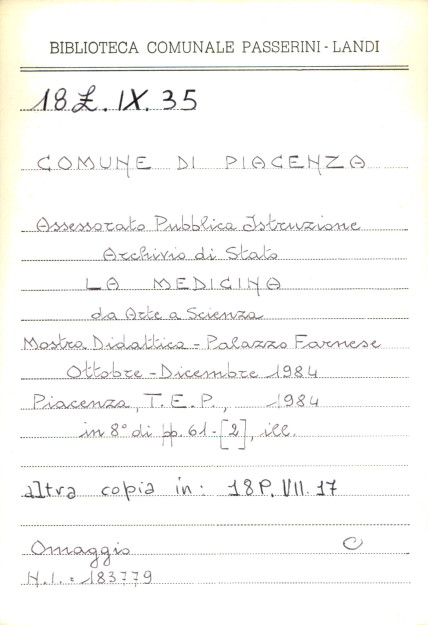 BIBLIOTECA COMUNALE PASSERINI - LANDI
18 £. IX. 35
COMUNE DI PIACENZA
Assessorato Pubblica Istruzione
Archivio di Stato
LA MEDICINA
da Arte a Scienza
Mostra Didattica - Palazzo Farnese
Ottobre - Dicembre 1984
Piacenza, T.E.P., 1984
in 8° di pp. 61-[2], ill.
altra copia in: 18 P. VII. 17
Omaggio C
N.I. = 183779